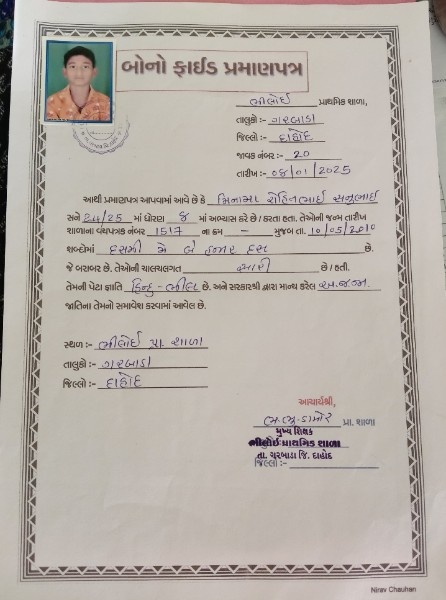 બોનો ફાઈડ પ્રમાણપત્ર
ભીલોઈ પ્રાથમિક શાળા,
તાલુકો :- ગરબાડા
જિલ્લો :- દાહોદ
જાવક નંબર :- 20
તારીખ :- 08/01/2025
આથી પ્રમાણપત્ર આપવામાં આવે છે કે મિનામા રોહિતભાઈ
સને 24/25 માં ધોરણ 8 માં અભ્યાસ કરે છે / કરતા હતા. તેઓની જન્મ તારીખ
શાળાના વયપત્રક નંબર 1517 ના ક્રમ - મુજબ તા. 10/05/2010
શબ્દોમાં દસમી મે બે હજાર દસ છે.
જે બરાબર છે. તેઓની ચાલચલગત સારી છે / હતી.
તેમની પેટા જ્ઞાતિ હિન્દુ - ભીલ છે. અને સરકારશ્રી દ્વારા માન્ય કરેલ અ.જ.જા.
જાતિના તેમનો સમાવેશ કરવામાં આવેલ છે.
સ્થળ :- ભીલોઈ પ્રા. શાળા
તાલુકો :- ગરબાડા
જિલ્લો :- દાહોદ
આચાર્યશ્રી,
પ્રા. શાળા
મુખ્ય શિક્ષક
ભીલોઈ પ્રાથમિક શાળા
તા. ગરબાડા જિ. દાહોદ
જિલ્લો :-
Nirav Chauhan